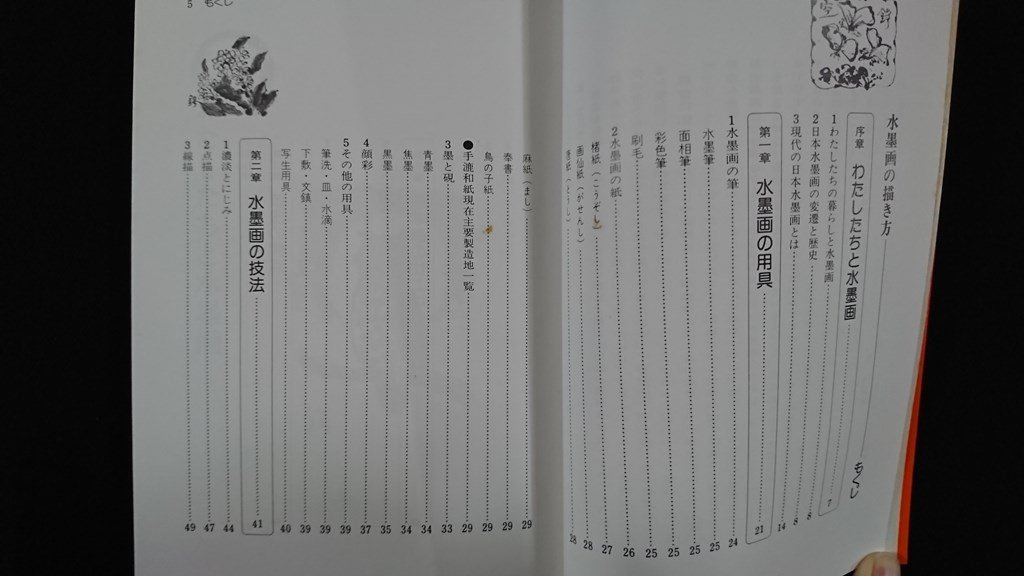 水墨画の描き方
もくじ
序章 わたしたちと水墨画 7
1 わたしたちの暮らしと水墨画 8
2 日本水墨画の変遷と歴史 8
3 現代の日本水墨画とは 14
第一章 水墨画の用具 21
1 水墨画の筆 24
水墨筆 25
面相筆 25
彩色筆 25
刷毛 26
2 水墨画の紙 27
楮紙(こうぞし) 28
画仙紙(がせんし) 28
麻紙(まし) 29
奉書 29
鳥の子紙 29
●手漉和紙現在主要製造地一覧 29
3 墨と硯 33
青墨 34
焦墨 34
黒墨 35
4 顔彩 37
5 その他の用具 39
筆洗・皿・水滴 39
下敷・文鎮 39
写生用具 40
第二章 水墨画の技法 41
1 濃淡とにじみ 44
2 点描 47
3 線描 49
5 もくじ